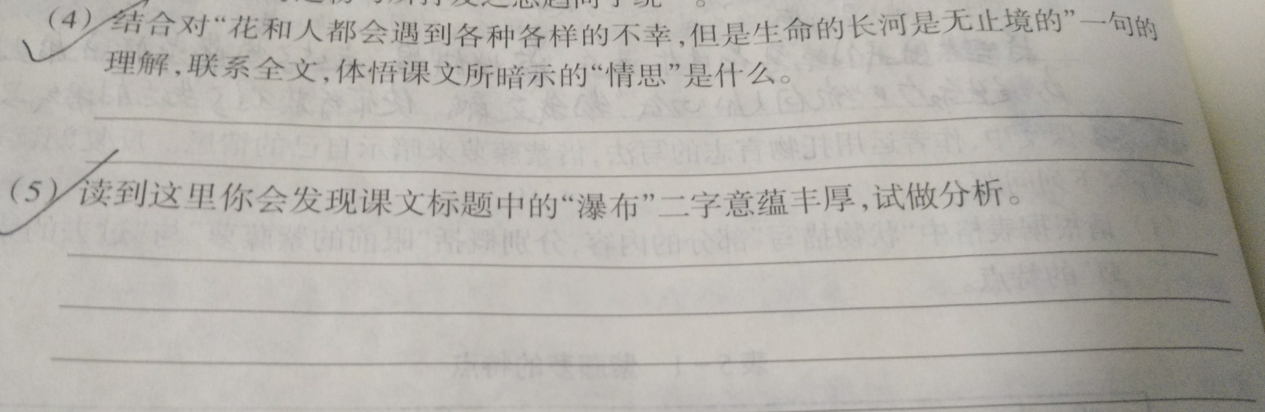 (4) 结合对“花和人都会遇到各种各样的不幸,但是生命的长河是无止境的”一句的
理解,联系全文,体悟课文所暗示的“情思”是什么。
(5) 读到这里你会发现课文标题中的“瀑布”二字意蕴丰厚,试做分析。